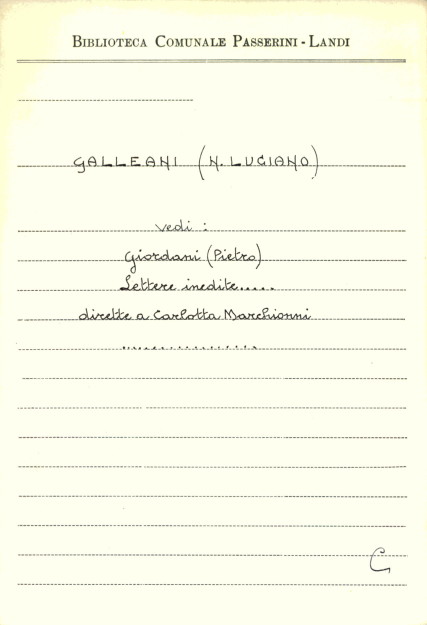 BIBLIOTECA COMUNALE PASSERINI - LANDI
GALLEANI (N. LUCIANO)
vedi :
Giordani (Pietro)
Lettere inedite.....
dirette a Carlotta Marchionni
................
C